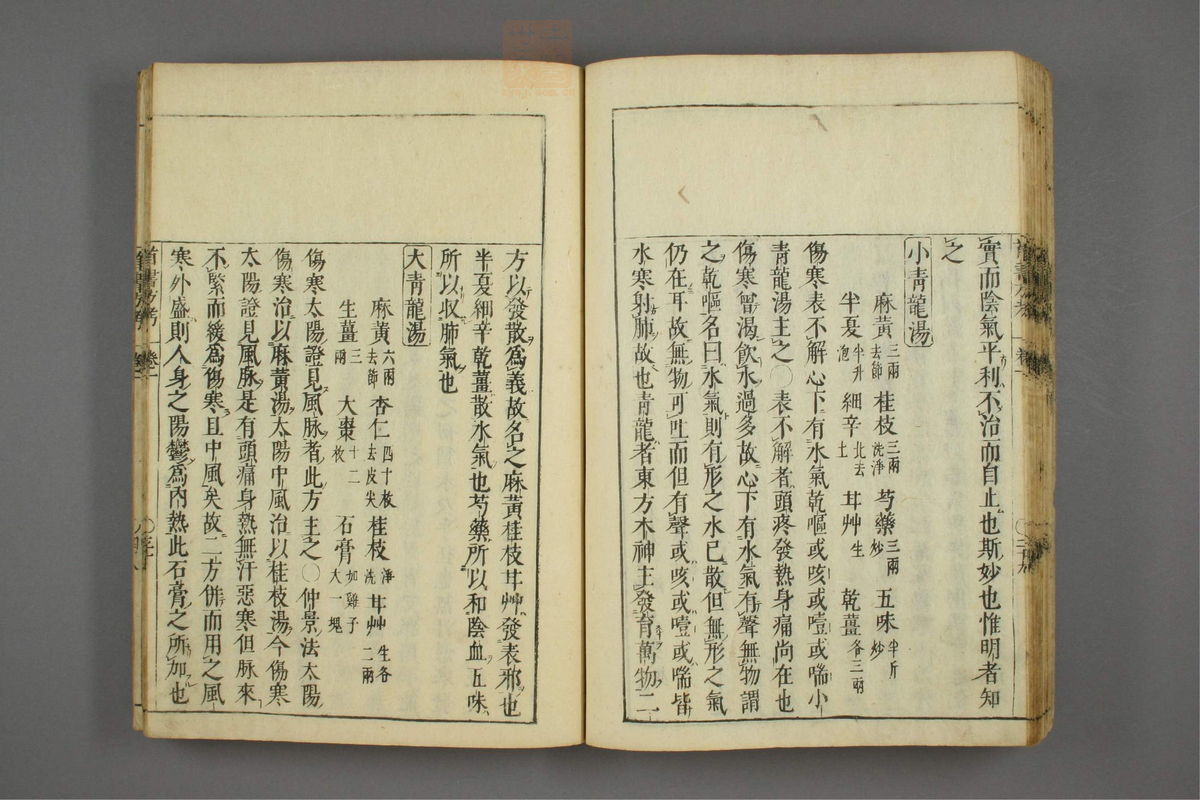 實而陰氣平利不治而自止也斯妙也惟明者知
之
小青龍湯
麻黃三兩去節 桂枝三兩洗淨 芍藥三兩炒 五味半斤炒
半夏半升泡 細辛北去土 甘艸生 乾薑各三兩
傷寒表不解心下有水氣乾嘔或咳或噎或喘小
青龍湯主之○表不解者頭疼發熱身痛尚在也
傷寒曾渴飲水過多故心下有水氣有聲無物謂
之乾嘔名曰水氣則有形之水已散但無形之氣
仍在耳故無物可吐而但有聲或咳或噎或喘皆
水寒射肺故也青龍者東方木神主發育萬物二
方以發散爲義故名之麻黃桂枝甘艸發表邪也
半夏細辛乾薑散水氣也芍藥所以和陰血五味
所以收肺氣也
大青龍湯
麻黃六兩去節 杏仁四十枚去皮尖 桂枝淨洗 甘艸生各二兩
生薑三兩 大棗十二枚 石膏如雞子大一塊
傷寒太陽證見風脉者此方主之○仲景法太陽
傷寒治以麻黃湯太陽中風治以桂枝湯今傷寒
太陽證見風脉是有頭痛身熱無汗惡寒但脉來
不緊而緩爲傷寒且中風矣故二方併而用之風
寒外盛則人身之陽鬱爲內熱此石膏之所加也